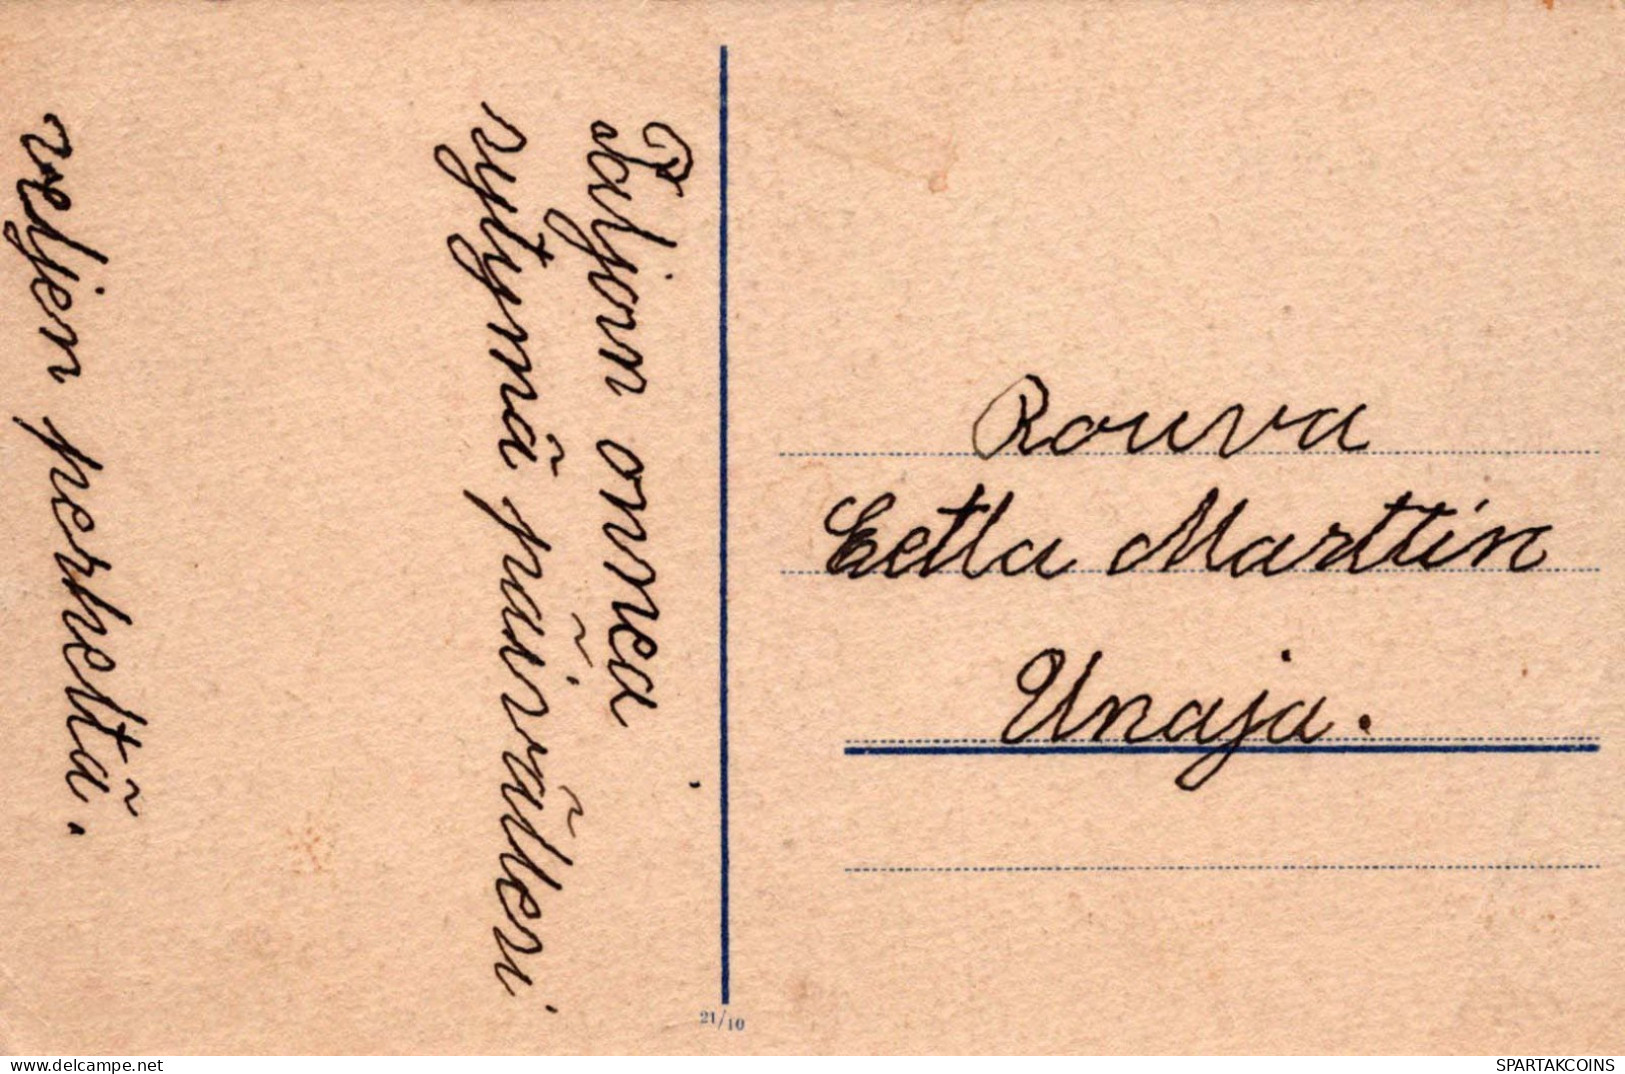 Paljon onnea
sytymä päivällesi
veljen perheltä.
Rouva
Eetla Marttin
Unaja.
21/10
delcampe.net
SPARTAKCOINS